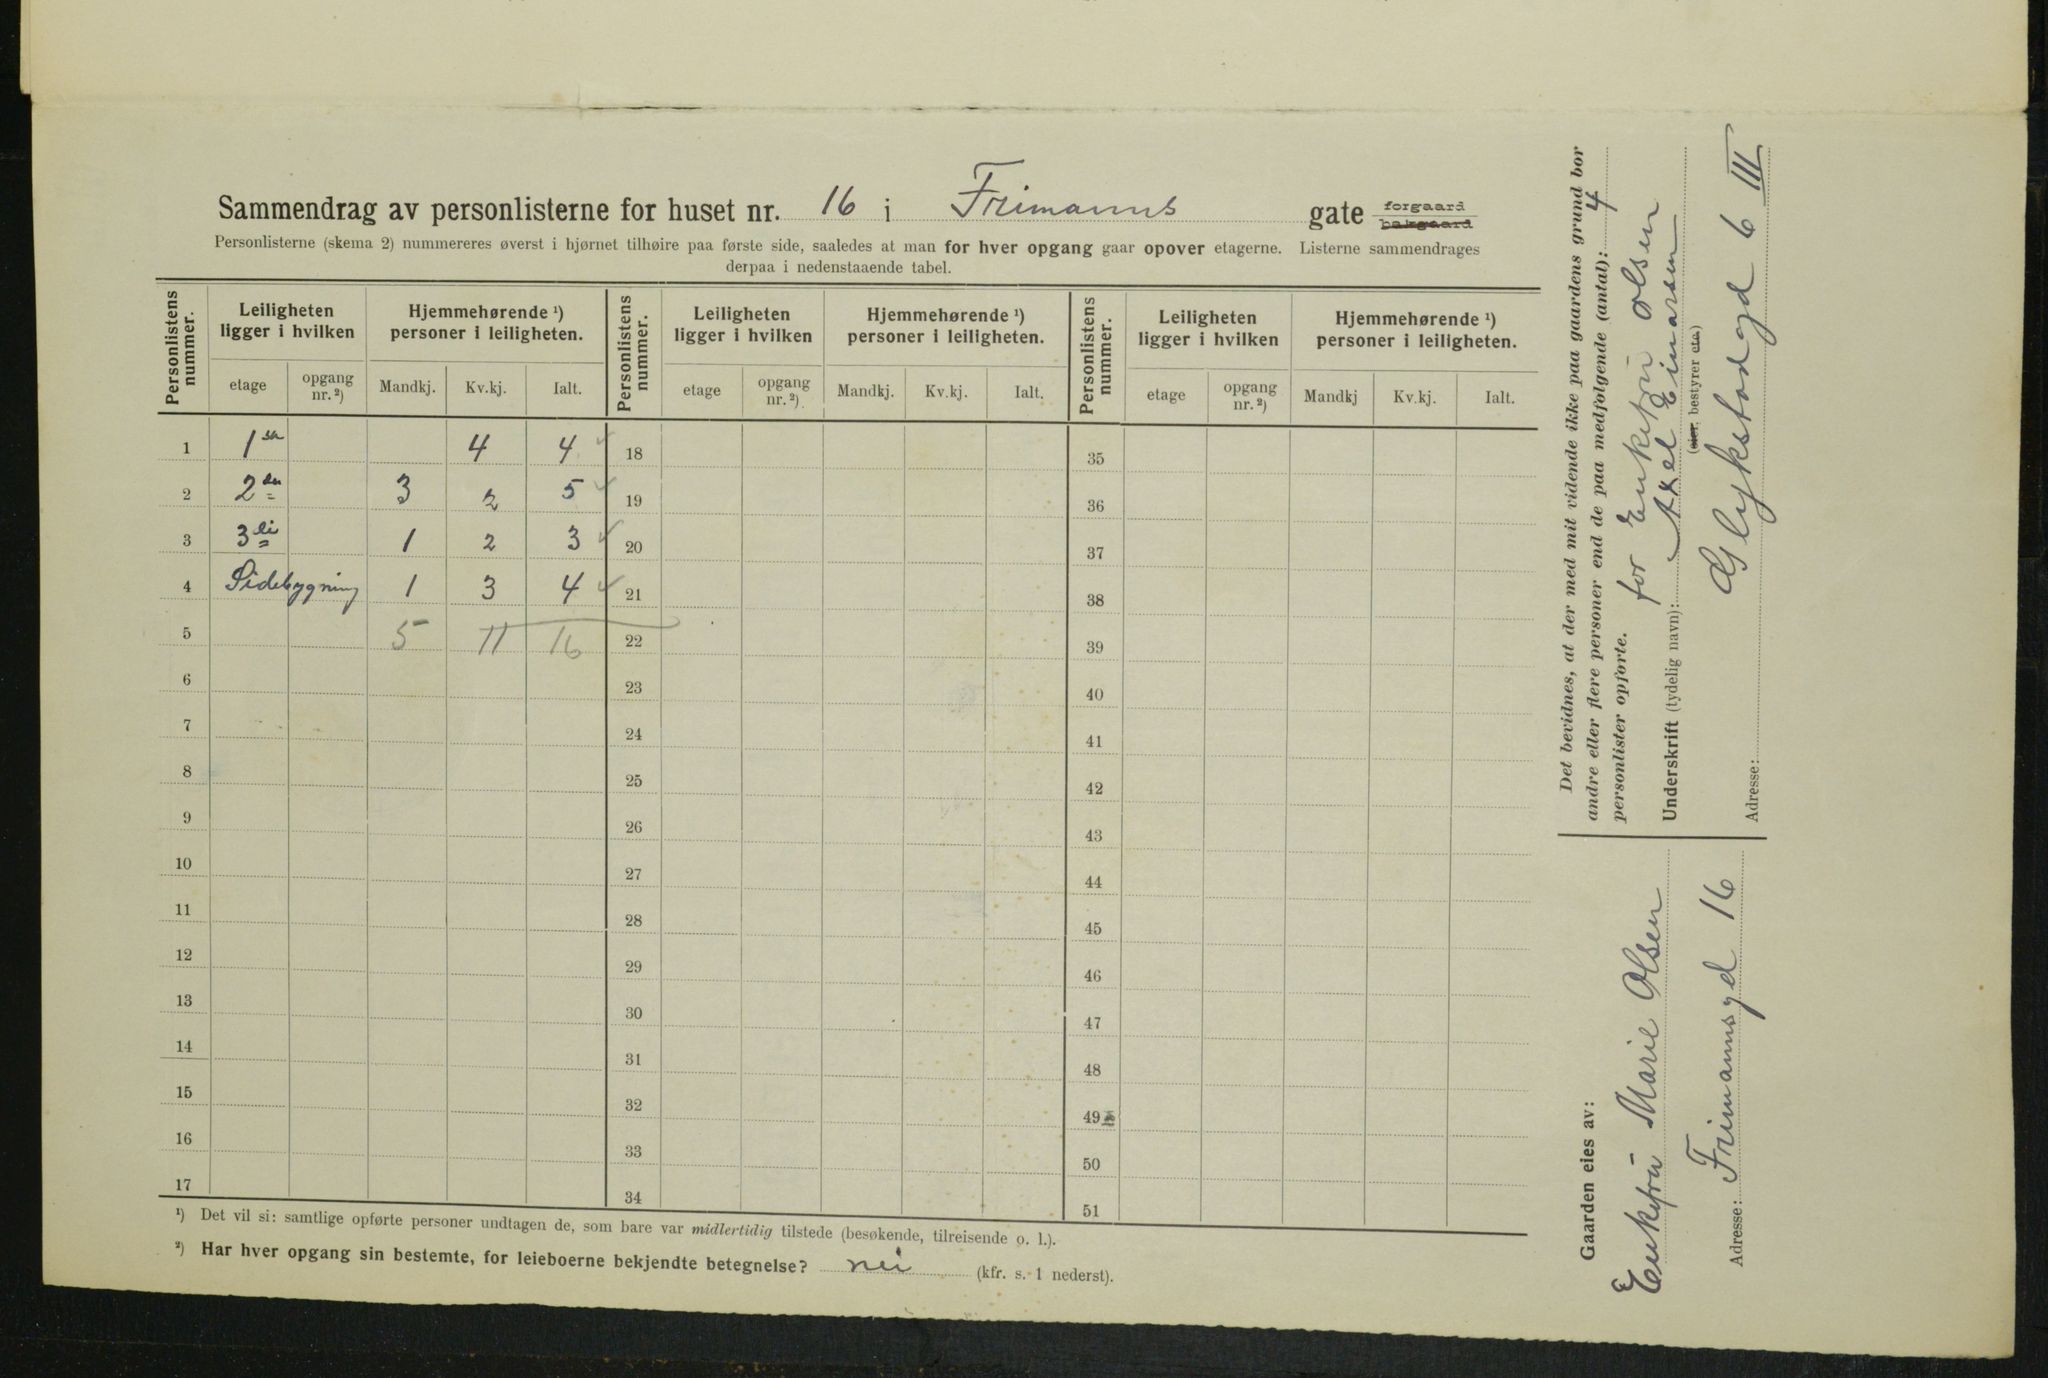 Sammendrag av personlisterne for huset nr. 16 i Frimanns gate forgaard bakgaard
Personlisterne (skema 2) nummereres øverst i hjørnet tilhøire paa første side, saaledes at man for hver opgang gaar opover etagerne. Listerne sammendrages
derpaa i nedenstaaende tabel.
Personlistens nummer. Leiligheten ligger i hvilken Hjemmehørende ¹) personer i leiligheten. Personlistens nummer. Leiligheten ligger i hvilken Hjemmehørende ¹) personer i leiligheten. Personlistens nummer. Leiligheten ligger i hvilken Hjemmehørende ¹) personer i leiligheten.
etage opgang nr. ²) Mandkj. Kv.kj. Ialt. etage opgang nr. ²) Mandkj. Kv.kj. Ialt. etage opgang nr. ²) Mandkj Kv.kj. Ialt.
1 1ste 4 4 18 35
2 2den 3 2 5 19 36
3 3die 1 2 3 20 37
4 Sidebygning 1 3 4 21 38
5 5 11 16 22 39
6 23 40
7 24 41
8 25 42
9 26 43
10 27 44
11 28 45
12 29 46
13 30 47
14 31 48
15 32 49
16 33 50
17 34 51
¹) Det vil si: samtlige opførte personer undtagen de, som bare var midlertidig tilstede (besøkende, tilreisende o. l.).
²) Har hver opgang sin bestemte, for leieboerne bekjendte betegnelse? nei (kfr. s. 1 nederst).
Det bevidnes, at der med mit vidende ikke paa gaardens grund bor
andre eller flere personer end de paa medfølgende (antal): 4
personlister opførte.
for Enkefru Olsen
Underskrift (tydelig navn): Axel Einarsen
(eier, bestyrer etc)
Adresse: Glykstadgd 6 III
Gaarden eies av:
Enkefru Marie Olsen
Adresse: Frimannsgd 16